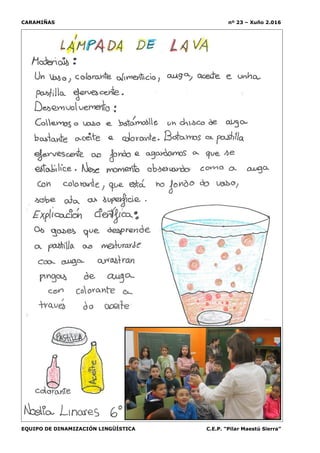 CARAMIÑAS nº 23 – Xuño 2.016
LÁMPADA DE LAVA
Materiais:
Un vaso, colorante alimenticio, auga, aceite e unha
pastilla efervescente.
Desenvolvemento:
Collemos o vaso e botámoslle un chisco de auga
bastante aceite e colorante. Botamos a pastilla
efervescente ao fondo e agardamos a que se
estabilice. Nese momento observando como a auga
con colorante, que está no fondo do vaso,
sobe ata as superficie.
Explicación científica:
Os gases que desprende
a pastilla ao mesturarse
coa auga arrastran
pingas de auga
con colorante a
través do aceite
PASTILLA
Aceite
colorante
Noelia Linares 6º
EQUIPO DE DINAMIZACIÓN LINGÜÍSTICA C.E.P. "Pilar Maestú Sierra"